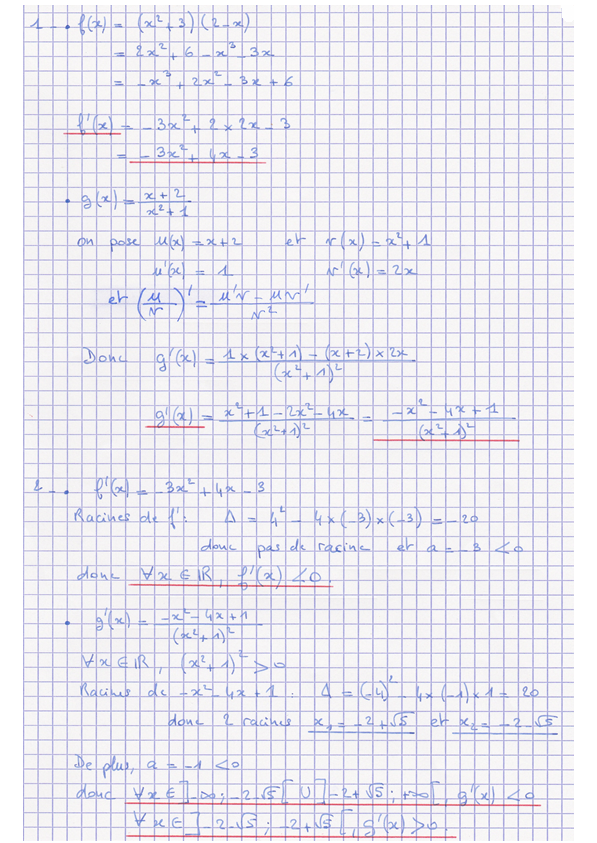 1 - • f(x) = (x²+3)(2-x)
= 2x² + 6 - x³ - 3x
= -x³ + 2x² - 3x + 6
f'(x) = -3x² + 2 × 2x - 3
= -3x² + 4x - 3
• g(x) = (x+2)/(x²+1)
on pose u(x) = x+2 et v(x) = x²+1
u'(x) = 1 v'(x) = 2x
et (u/v)' = (u'v - uv')/v²
Donc g'(x) = (1 × (x²+1) - (x+2) × 2x)/(x²+1)²
g'(x) = (x²+1-2x²-4x)/(x²+1)² = (-x²-4x+1)/(x²+1)²
2 - • f'(x) = -3x² + 4x - 3
Racines de f' : Δ = 4² - 4×(-3)×(-3) = -20
donc pas de racine et a = -3 < 0
donc ∀x ∈ ℝ, f'(x) < 0.
• g'(x) = (-x²-4x+1)/(x²+1)²
∀x ∈ ℝ, (x²+1)² > 0
Racines de -x²-4x+1 : Δ = (-4)² - 4×(-1)×1 = 20
donc 2 racines x₁ = -2+√5 et x₂ = -2-√5
De plus, a = -1 < 0
donc ∀x ∈ ]-∞; -2-√5[ ∪ ]-2+√5; +∞[, g'(x) < 0
∀x ∈ ]-2-√5; -2+√5[, g'(x) > 0.